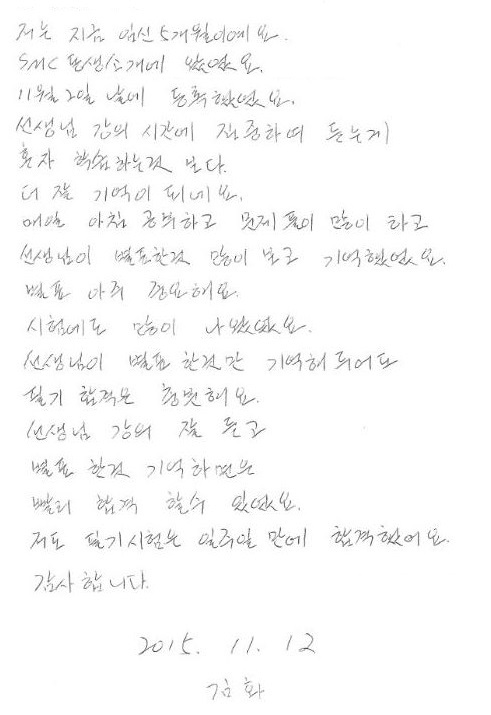 저는 지금 임신 5개월이에요.
SMC 동생소개에 왔었어요.
11월 2일 날에 등록했었어요.
선생님 강의 시간에 집중하며 듣는게
혼자 학습하는것 보다.
더 잘 기억이 되네요.
매일 아침 공부하고 문제 풀이 많이 하고
선생님이 별표한것 많이 보고 기억했었어요.
별표 아주 중요해요.
시험에도 많이 나왔었어요.
선생님이 별표 한것만 기억해 두어도
필기 합격은 충분해요.
선생님 강의 잘 듣고
별표 한것 기억하면은
빨리 합격 할수 있었어요.
저도 필기시험은 일주일 만에 합격했어요.
감사합니다.
2015. 11. 12
김화